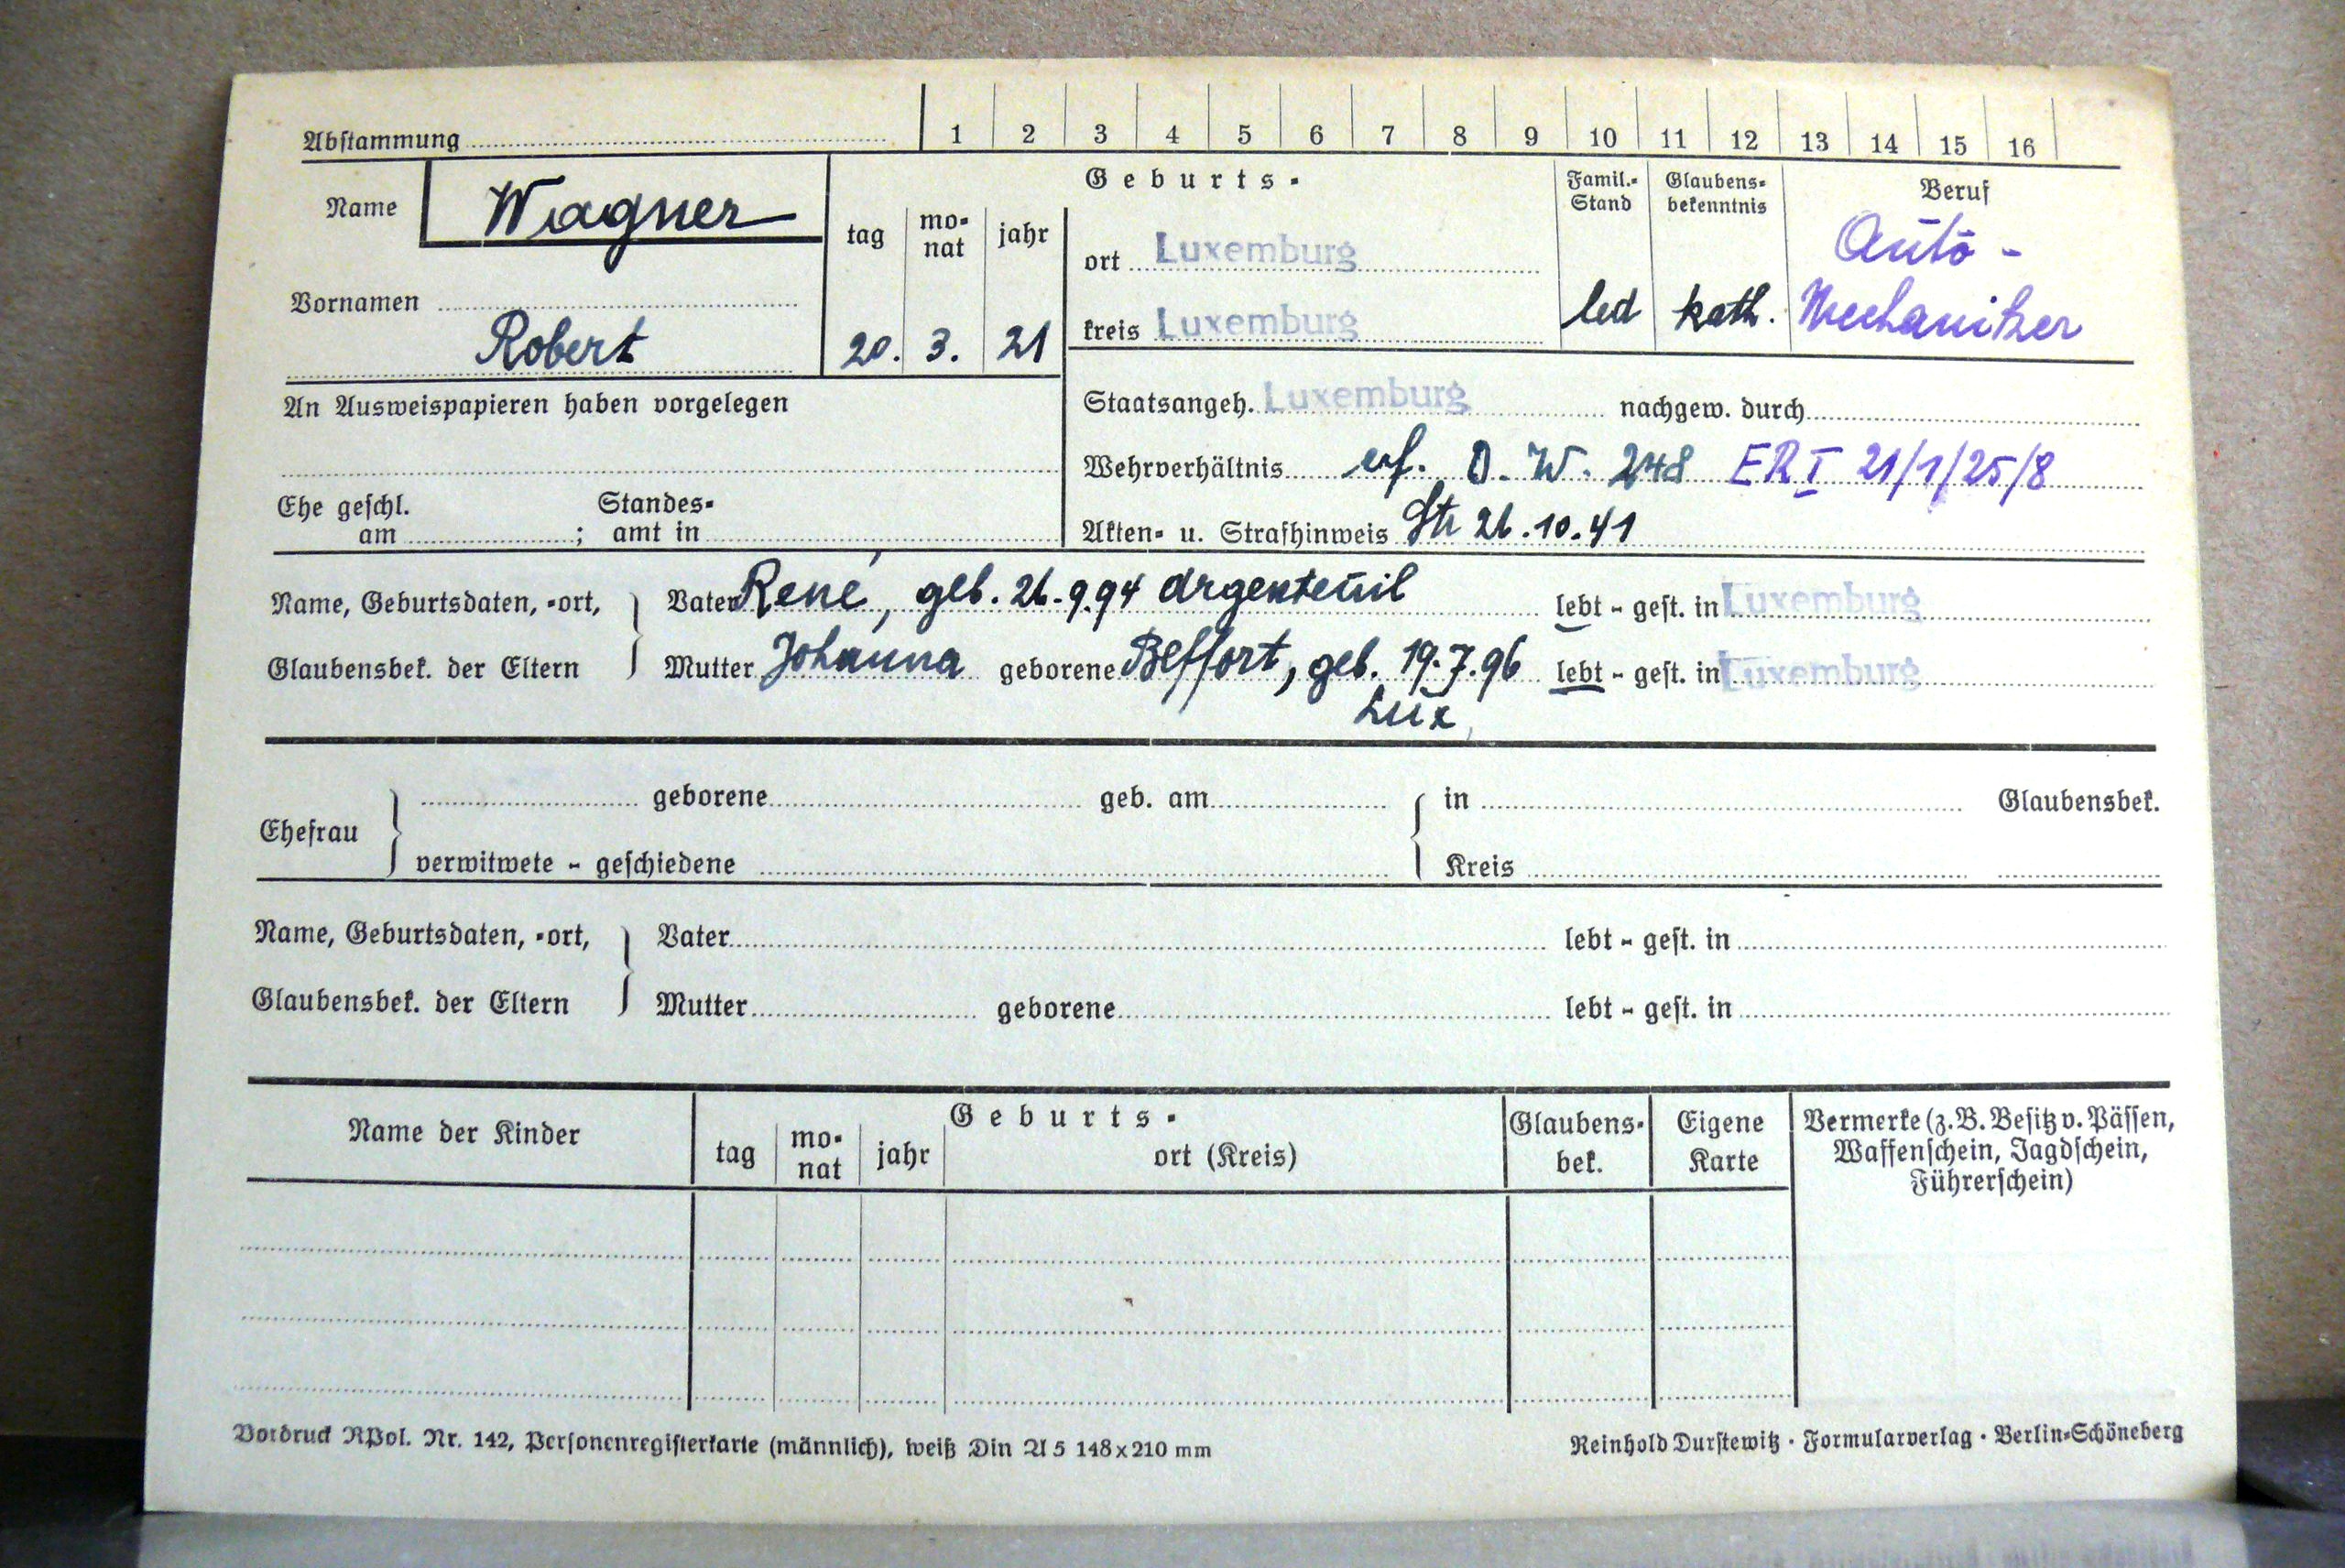 Abstammung 1 2 3 4 5 6 7 8 9 10 11 12 13 14 15 16
Name Wagner
Vornamen
Robert
Geburts-
tag monat jahr
20. 3. 21
ort Luxemburg
kreis Luxemburg
Famil.-Stand
led
Glaubensbekenntnis
kath.
Beruf
Auto-
Mechaniker
An Ausweispapieren haben vorgelegen
Staatsangeh. Luxemburg nachgew. durch
Wehrverhältnis erf. D. W. 248 ER I 21/1/25/8
Ehe geschl. Standes-
am ; amt in
Akten- u. Strafhinweis Str 26.10.41
Name, Geburtsdaten, -ort, Vater René, geb. 26.9.94 Argenteuil lebt - gest. in Luxemburg
Glaubensbek. der Eltern Mutter Johanna geborene Beffort, geb. 19.7.96 lebt - gest. in Luxemburg
Lux
Ehefrau geborene geb. am in Glaubensbek.
verwitwete - geschiedene Kreis
Name, Geburtsdaten, -ort, Vater lebt - gest. in
Glaubensbek. der Eltern Mutter geborene lebt - gest. in
Name der Kinder
Geburts-
tag monat jahr ort (Kreis)
Glaubens-
bek.
Eigene
Karte
Vermerke (z. B. Besitz v. Pässen,
Waffenschein, Jagdschein,
Führerschein)
Vordruck RPol. Nr. 142, Personenregisterkarte (männlich), weiß Din A 5 148x210 mm
Reinhold Durstewitz · Formularverlag · Berlin-Schöneberg